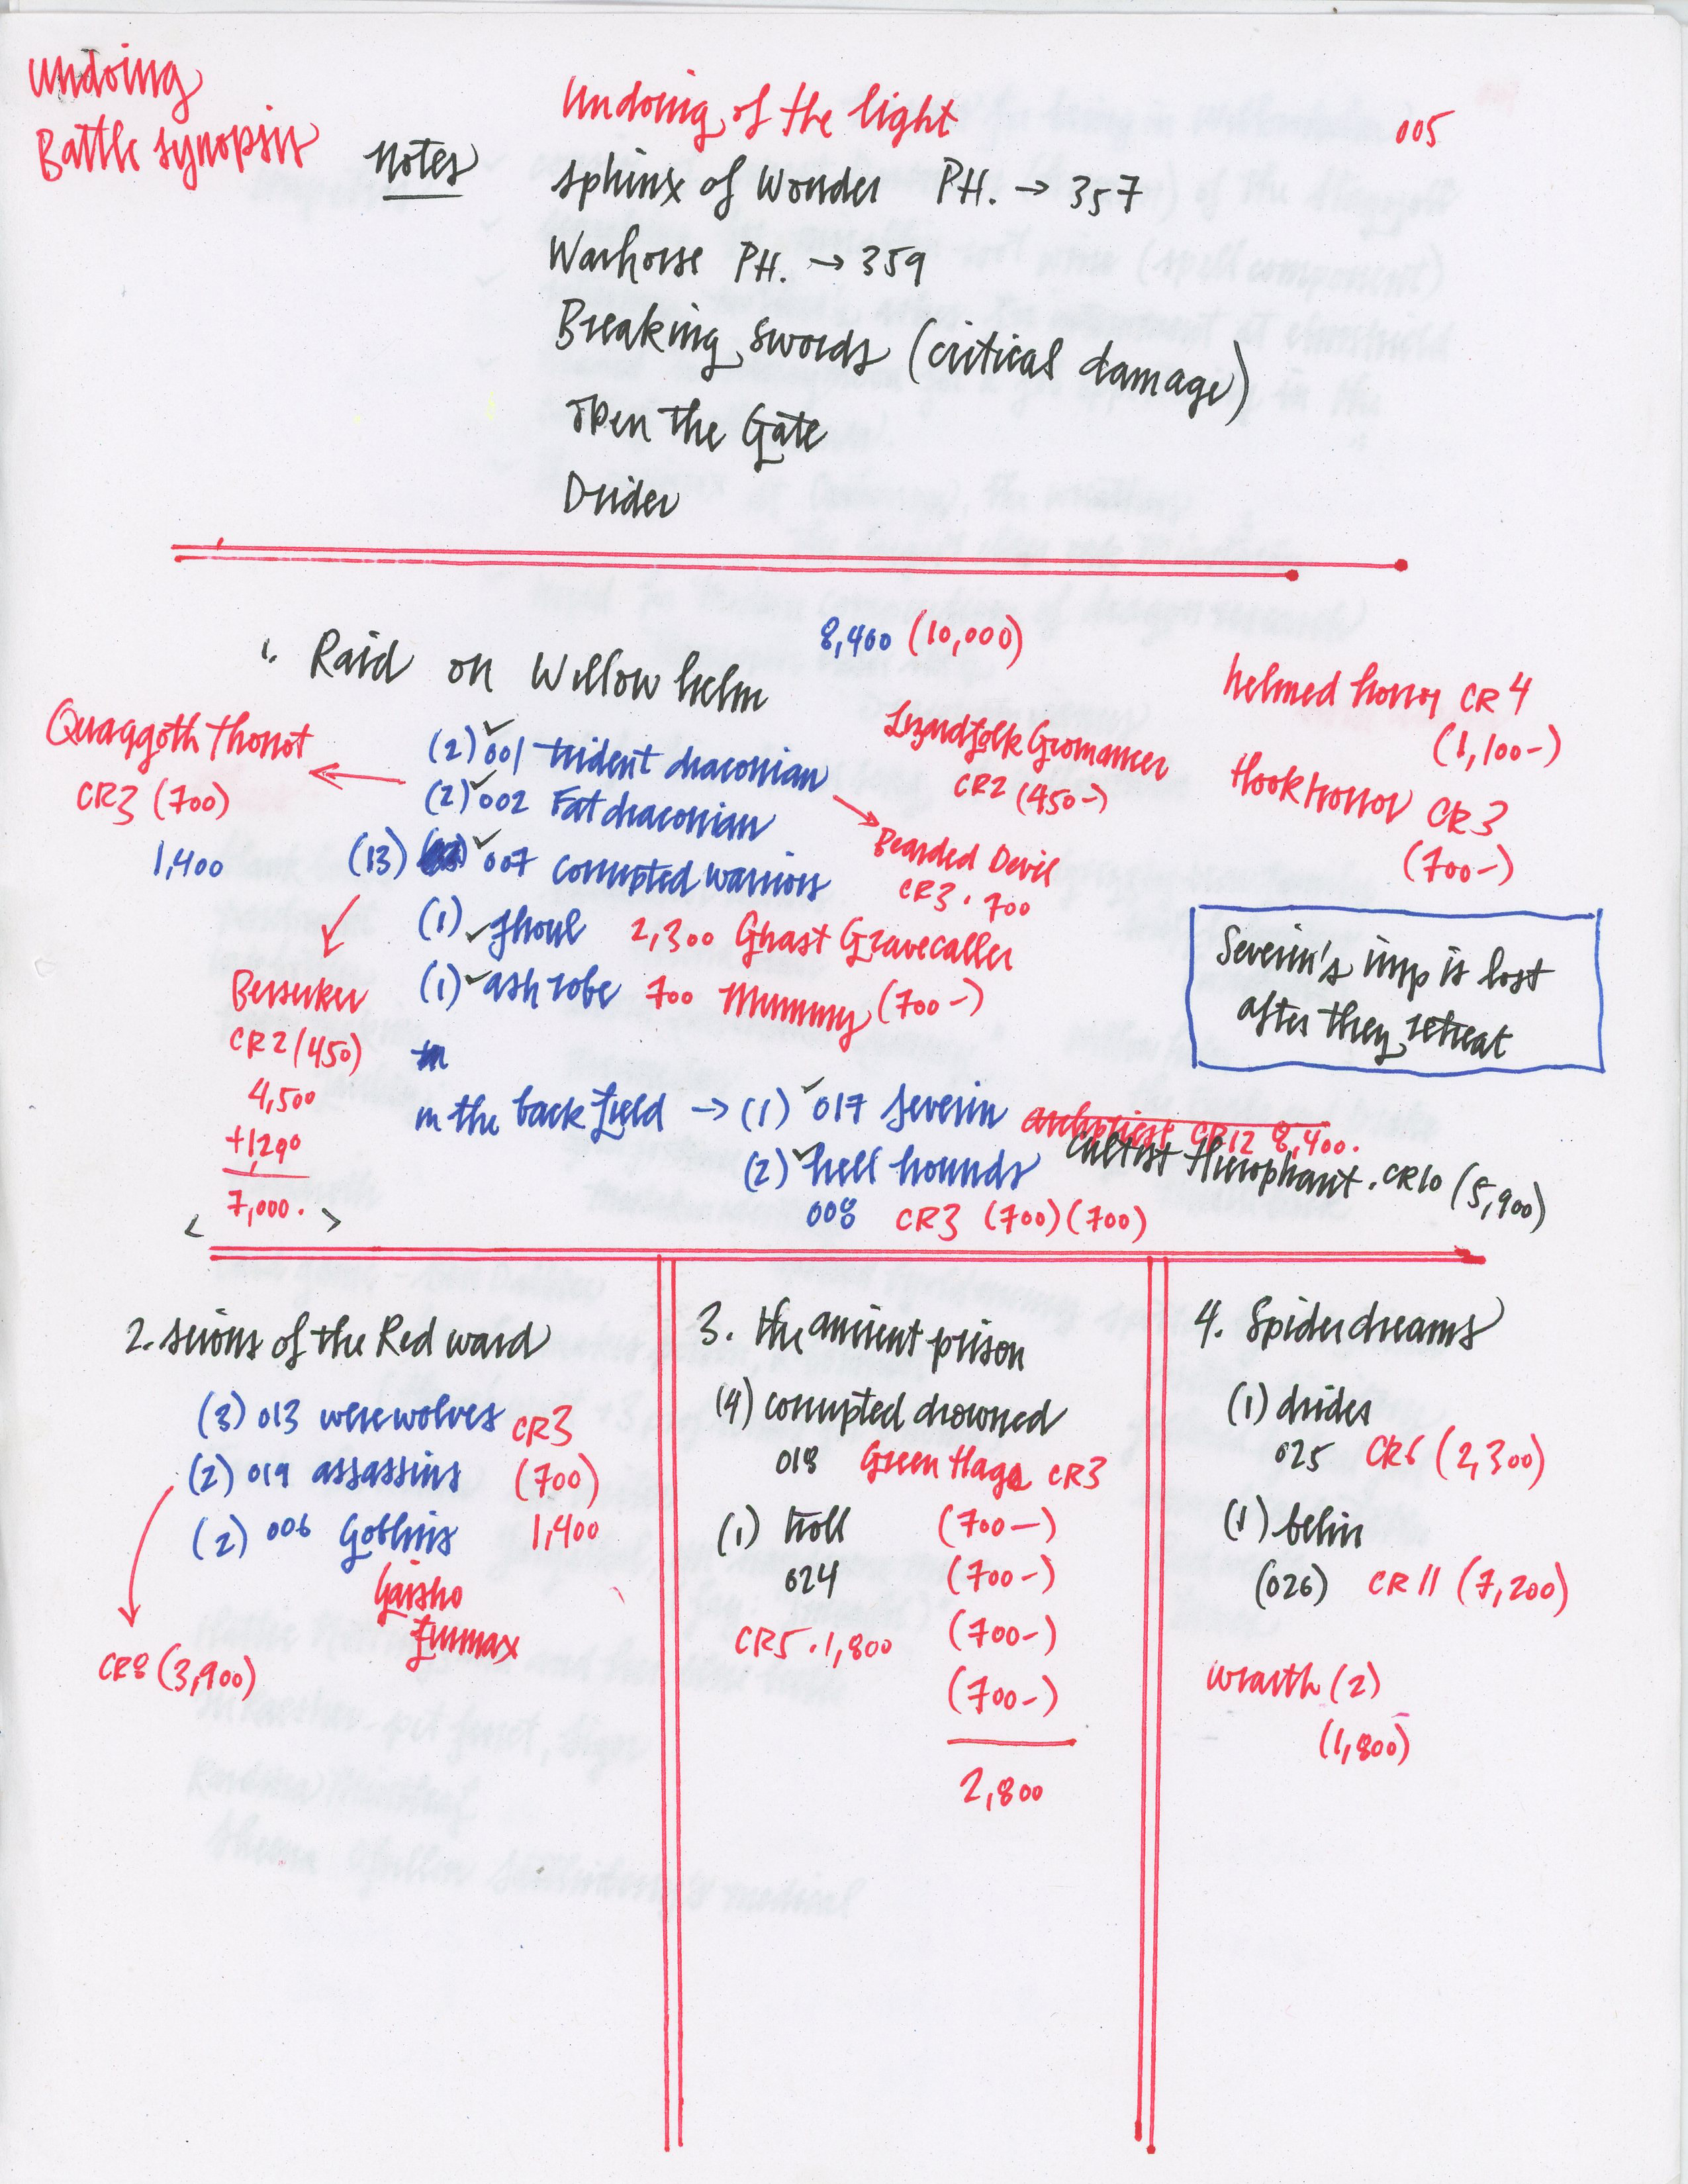 Undoing
Battle synopsis
Notes
Undoing of the light
005
Sphinx of Wonder PH. → 357
Warhorse PH. → 359
Breaking swords (critical damage)
Open the Gate
Drider
1. Raid on Willowhelm
8,400 (10,000)
Quaggoth Thonot
CR3 (700)
1,400
(2) 001 trident draconian
(2) 002 Fat draconian
(13) 007 corrupted warriors
(1) ghoul 2,300 Ghast Gravecaller
(1) ash robe 700 Mummy (700-)
Lizardfolk Geomancer
CR2 (450-)
Bearded Devil
CR3 . 700
helmed horror CR4
(1,100-)
Hook horror CR3
(700-)
Severin's imp is lost
after they retreat
Berserker
CR2 (450)
4,500
+1,290
7,000.
< >
in the back field → (1) 017 Severin archpriest CR12 8,400.
(2) hell hounds cultist hierophant . CR10 (5,900)
008 CR3 (700) (700)
2. scions of the Red ward
(3) 013 werewolves CR3
(2) 019 assassins (700)
(2) 006 Goblins 1,400
Gaisho
CR8 (3,900)
3. the ancient prison
(4) corrupted drowned
018 Green Hags CR3
(1) troll (700-)
024 (700-)
CR5 . 1,800 (700-)
(700-)
2,800
4. Spider dreams
(1) drider
025 CR6 (2,300)
(1) behir
(026) CR 11 (7,200)
wraith (2)
(1,800)